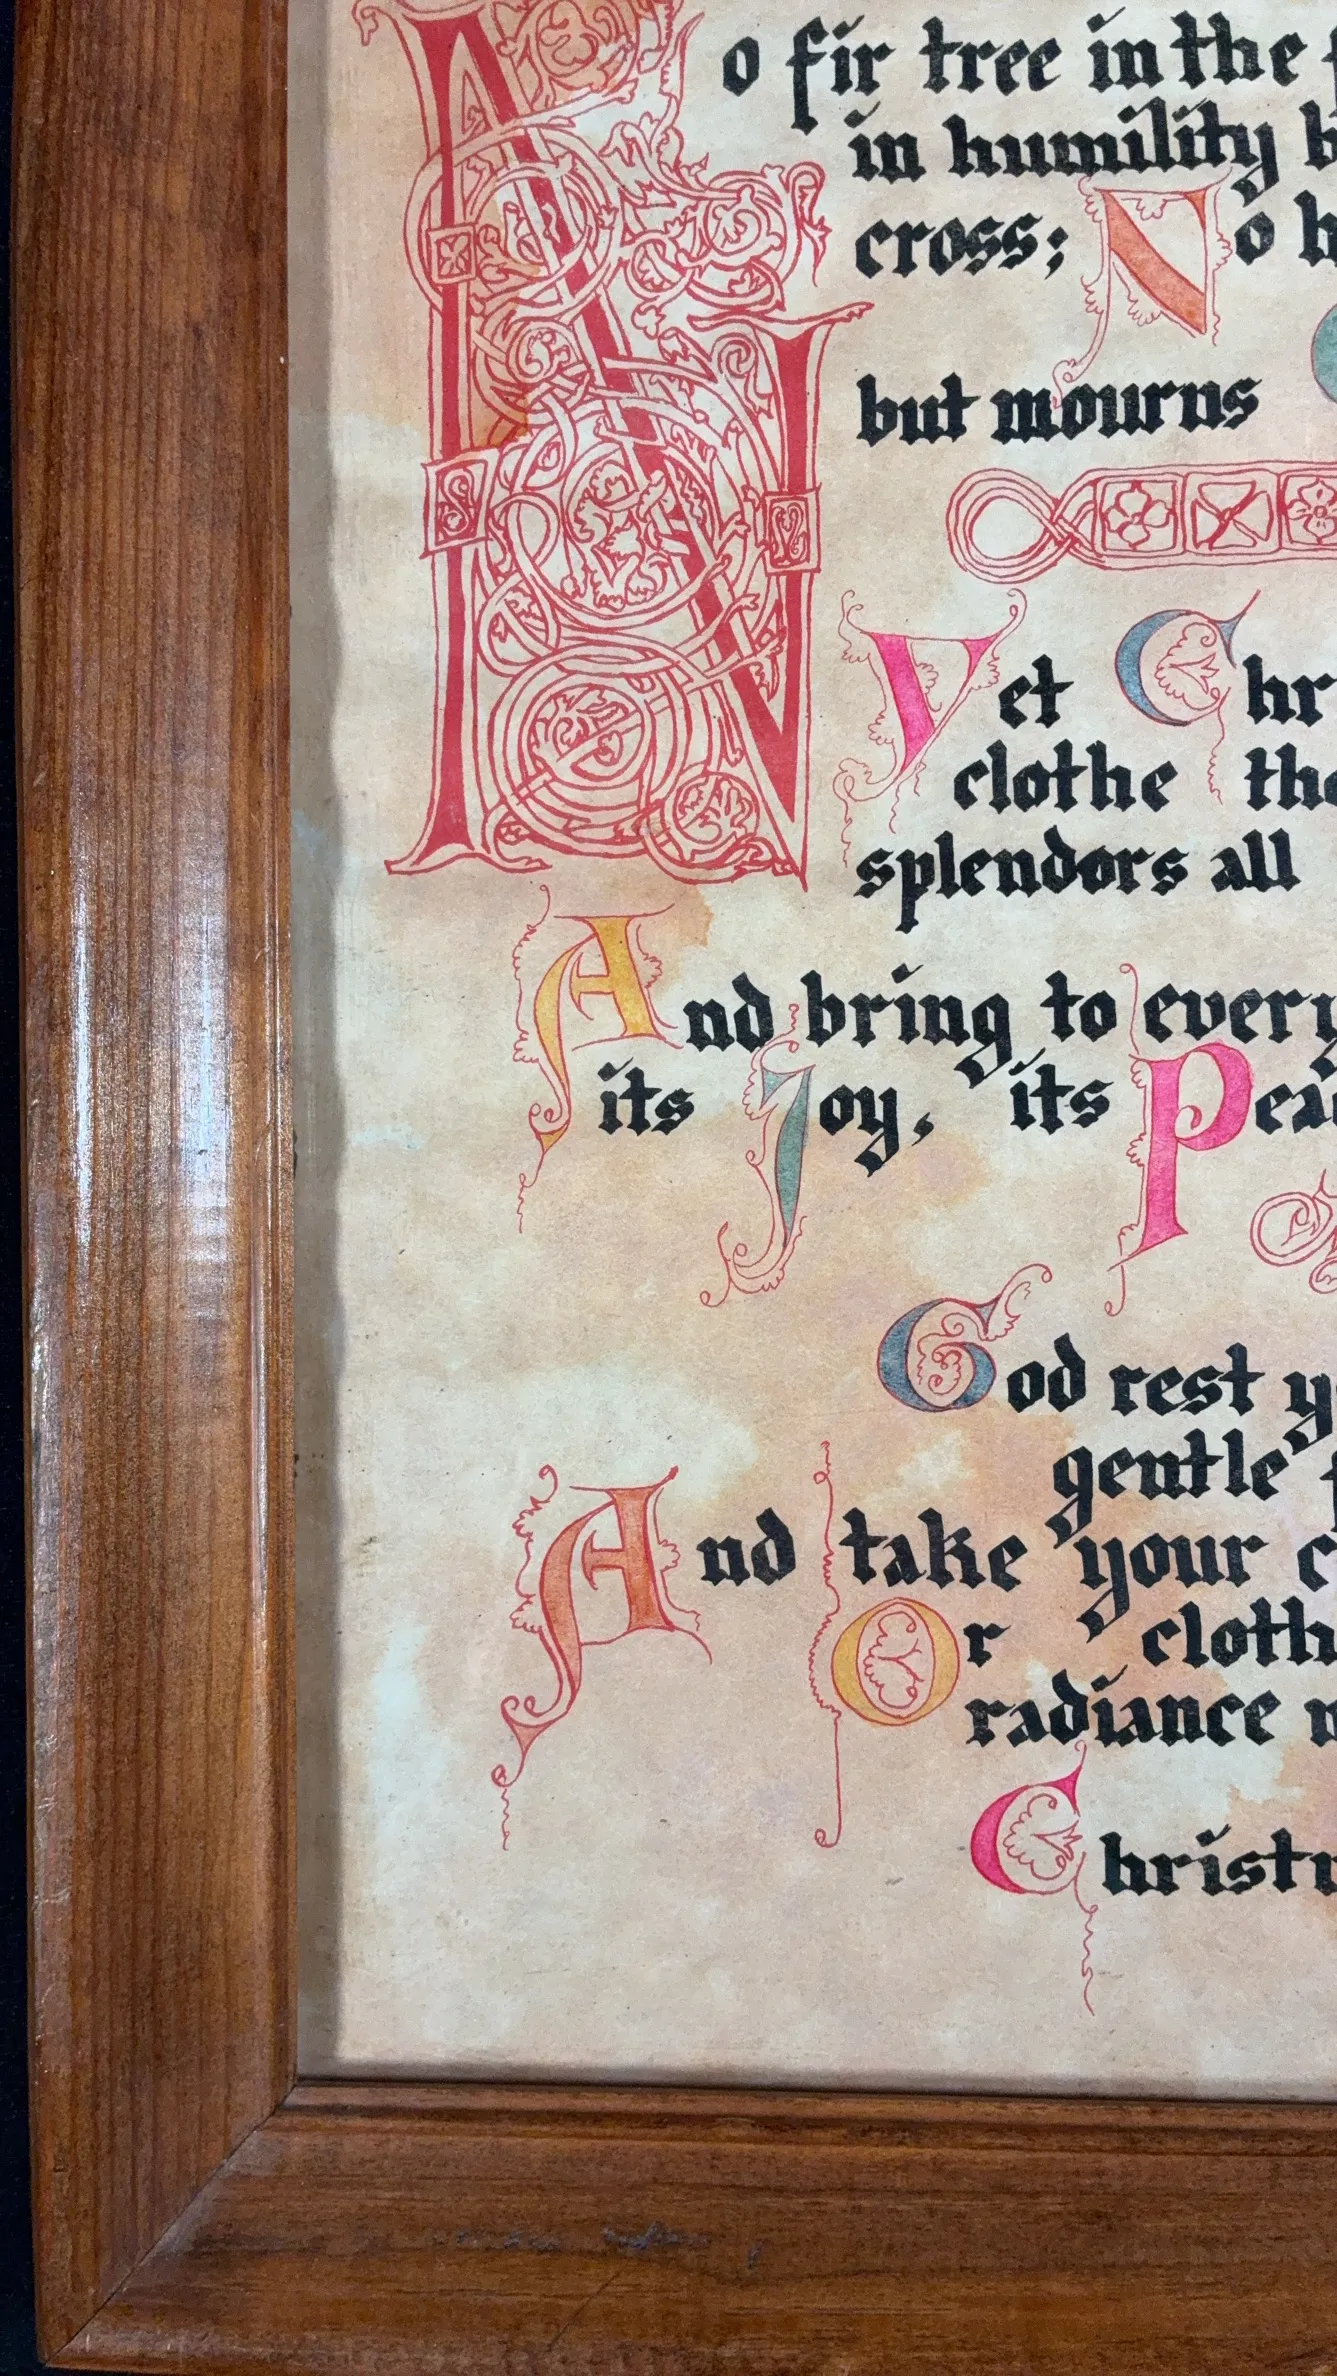 No fir tree in the
in humility
cross; No
but mourns
Yet
clothe
splendors all
And bring to every
its Joy, its
God rest
gentle
And take your
Or
radiance